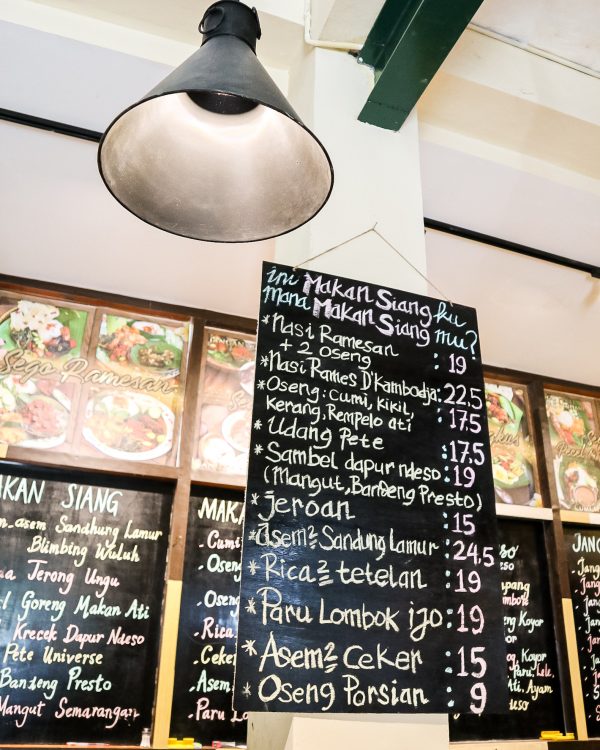 ini Makan Siang ku
mana Makan Siang mu?
*Nasi Ramesan
+ 2 oseng : 19
*Nasi Rames D'Kambodja: 22.5
*Oseng: Cumi, Kikil, : 17.5
Kerang, Rempelo ati
* Udang Pete : 17.5
*Sambel dapur ndeso : 19
(Mangut, Banδeng Presto)
*Jeroan : 15
*Asem2 Sandung Lamur : 24.5
*Rica2 tetelan : 19
*Paru Lombok ijo : 19
*Asem2 Ceker : 15
*Oseng Porsian : 9
Sego Ramesan
AKAN SIANG
asem Sandhung Lamur
Blimbing Wuluh
Jerong Ungu
Goreng Makan Ati
Krecek Dapur Ndeso
Pete Universe
Banδeng Presto
Mangut Semarangan
MAKA
.Cumi
Oseng
.Oseng
.Rica
.Ceker
.Asem
.Paru Lo
pang
Koyor
Koyor
Paru, Lele,
Ati, Ayam
deso
JANG